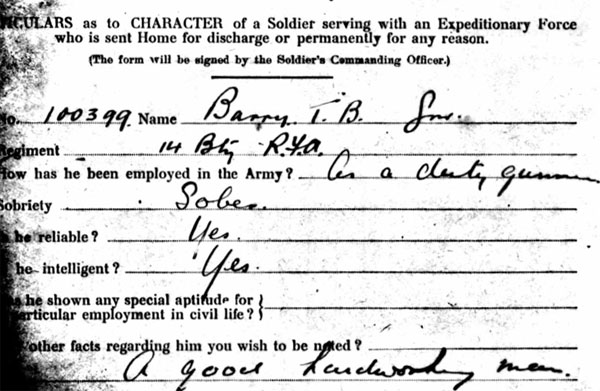 ICULARS as to CHARACTER of a Soldier serving with an Expeditionary Force
who is sent Home for discharge or permanently for any reason.
(The form will be signed by the Soldier's Commanding Officer.)
No. 100399 Name Barry. T. B. Gnr.
Regiment 14 Bty R.F.A.
How has he been employed in the Army? As a duty gunner
Sobriety Sober.
he reliable? Yes.
he intelligent? Yes.
he shown any special aptitude for }
articular employment in civil life? }
other facts regarding him you wish to be noted?
A good hardworking man.